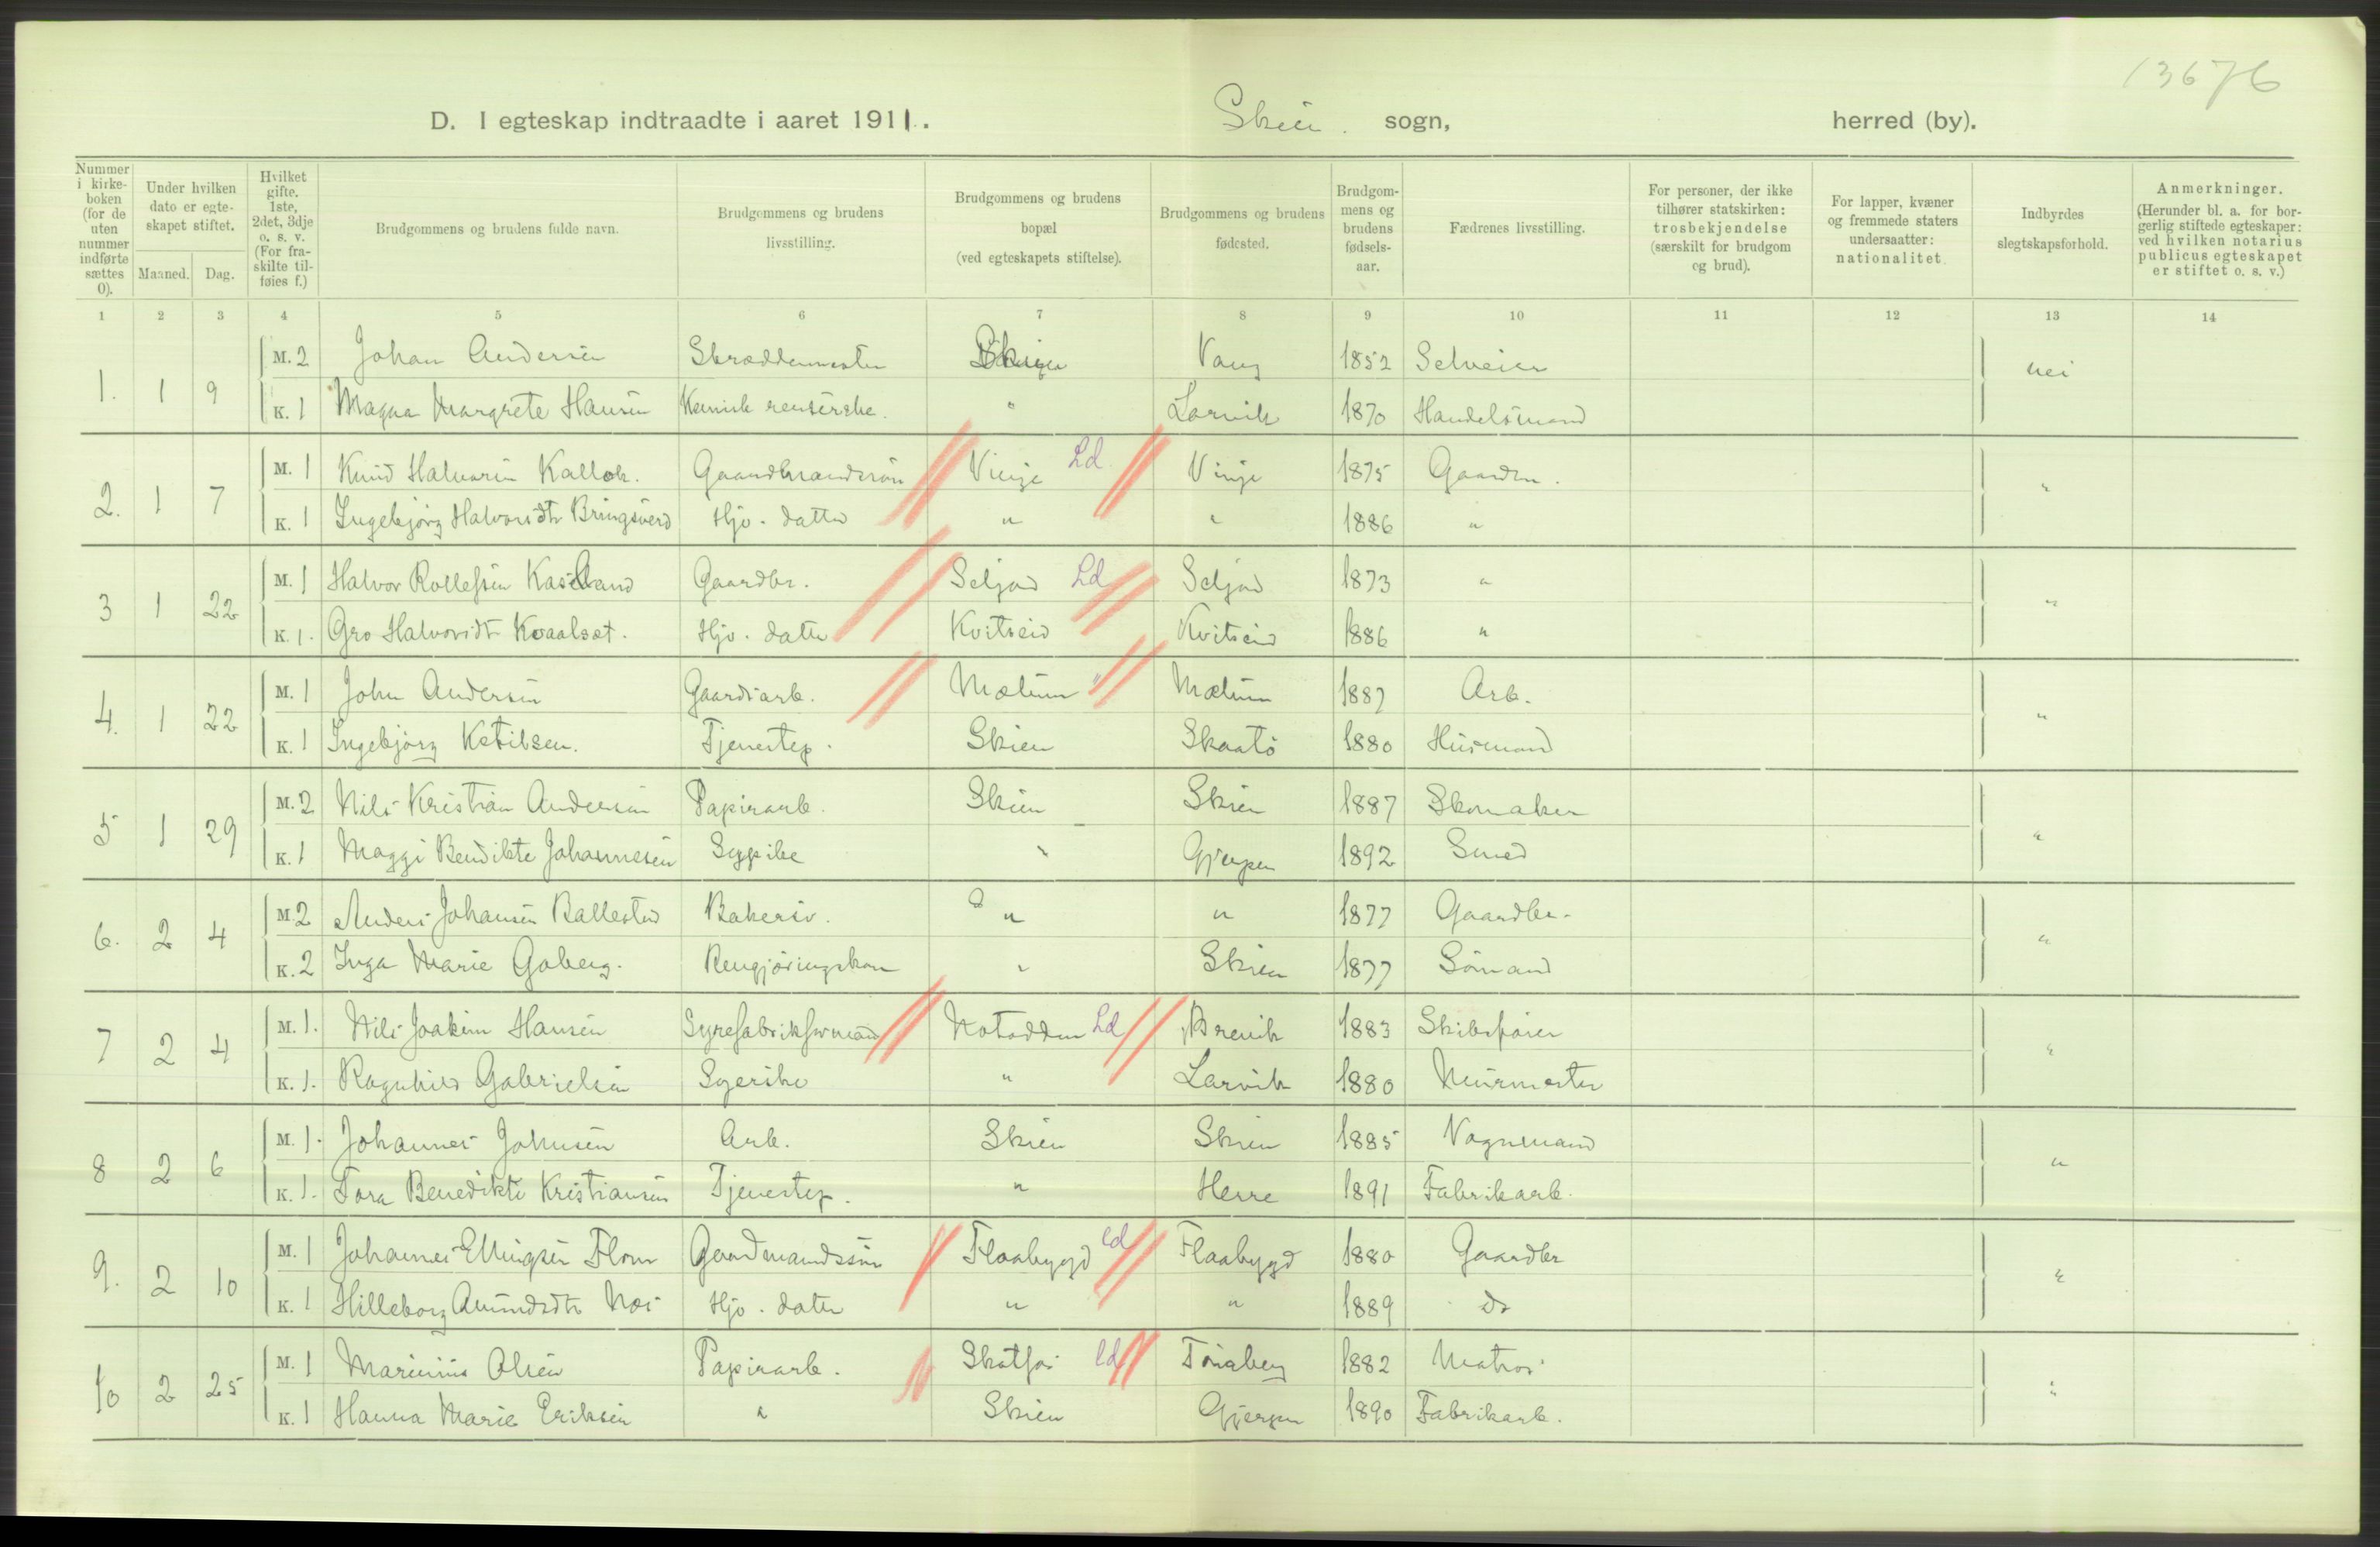 13676
D. I egteskap indtraadte i aaret 1911. Skien sogn, herred (by).
Nummer i kirke-boken (for de uten nummer indførte sættes 0). | Under hvilken dato er egte-skapet stiftet. Maaned. Dag. | Hvilket gifte. 1ste, 2det, 3dje o. s. v. (For fra-skilte til-føies f.) | Brudgommens og brudens fulde navn. | Brudgommens og brudens livsstilling. | Brudgommens og brudens bopæl (ved egteskapets stiftelse). | Brudgommens og brudens fødested. | Brudgom-mens og brudens fødsels-aar. | Fædrenes livsstilling. | For personer, der ikke tilhører statskirken: trosbekjendelse (særskilt for brudgom og brud). | For lapper, kvæner og fremmede staters undersaatter: nationalitet | Indbyrdes slegtskapsforhold. | Anmerkninger. (Herunder bl. a. for bor-gerlig stiftede egteskaper: ved hvilken notarius publicus egteskapet er stiftet o. s. v.)
1 2 3 4 5 6 7 8 9 10 11 12 13 14
1. 1 9 M. 2 Johan Andersen Skræddermester Skien Vang 1852 Selveier nei
K. 1 Magna Margrete Hansen Kemisk renserske. " Larvik 1870 Handelsmand
2. 1 7 M. 1 Knud Halvorsen Gaardmandssøn Vinje Ld Vinje 1875 Gaardm. "
K. 1 Ingebjørg Halvorsdtr Bringsverd Hjv. datter " " 1886 "
3 1 22 M. 1 Halvor Rollefsen Gaardbr. Seljord Ld Seljord 1873 " "
K. 1. Gro Halvorsdtr Kvaalset. Hjv. datter Kvitseid Kvitseid 1886 "
4. 1 22 M. 1 John Andersen Gaardsarb. Mælum " Mælum 1887 Arb. "
K. 1 Ingebjørg Ketilsen. Tjenestep. Skien Skaatø 1880 Husmand
5 1 29 M. 2 Nils Kristian Andersen Papirarb. Skien Skien 1887 Skomaker "
K. 1 Maggi Bendikte Johannesen Sypike " Gjerpen 1892 Smed
6. 2 4 M. 2 Anders Johansen Ballestad Bakersv. " " 1877 Gaardbr. "
K. 2 Inga Marie Gaberg. Rengjøringskone " Skien 1877 Sømand
7 2 4 M. 1. Nils Joakim Hansen Syrefabrikformand Notodden Ld Brevik 1883 Skibsfører "
K. 1. Ragnhild Gabrielsen Syerske " Larvik 1880 Murmester
8 2 6 M. 1. Johannes Johnsen Arb. Skien Skien 1885 Vognmand "
K. 1. Tora Benedikte Kristiansen Tjenestep. " Herre 1891 Fabrikarb.
9. 2 10 M. 1 Johannes Ellingsen Flom Gaardmandssøn Flaabygd Ld Flaabygd 1880 Gaardbr "
K. 1 Hilleborg Amundsdtr Næs Hjv. datter " " 1889 do
10 2 25 M. 1 Marinius Olsen Papirarb. Skotfos Ld Tønsberg 1882 Matros "
K. 1 Hanna Marie Eriksen " Skien Gjerpen 1890 Fabrikarb.